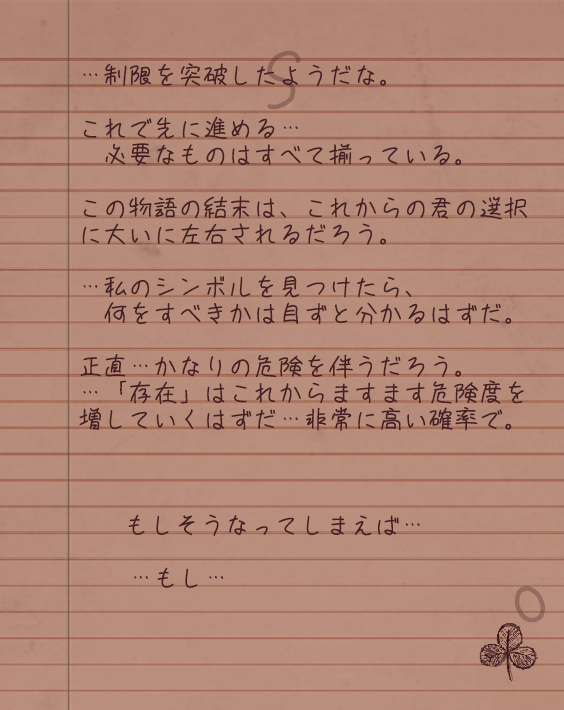 …制限を突破したようだな。
S
これで先に進める…
必要なものはすべて揃っている。
この物語の結末は、これからの君の選択
に大いに左右されるだろう。
…私のシンボルを見つけたら、
何をすべきかは自ずと分かるはずだ。
正直…かなりの危険を伴うだろう。
…「存在」はこれからますます危険度を
増していくはずだ…非常に高い確率で。
もしそうなってしまえば…
…もし…
O